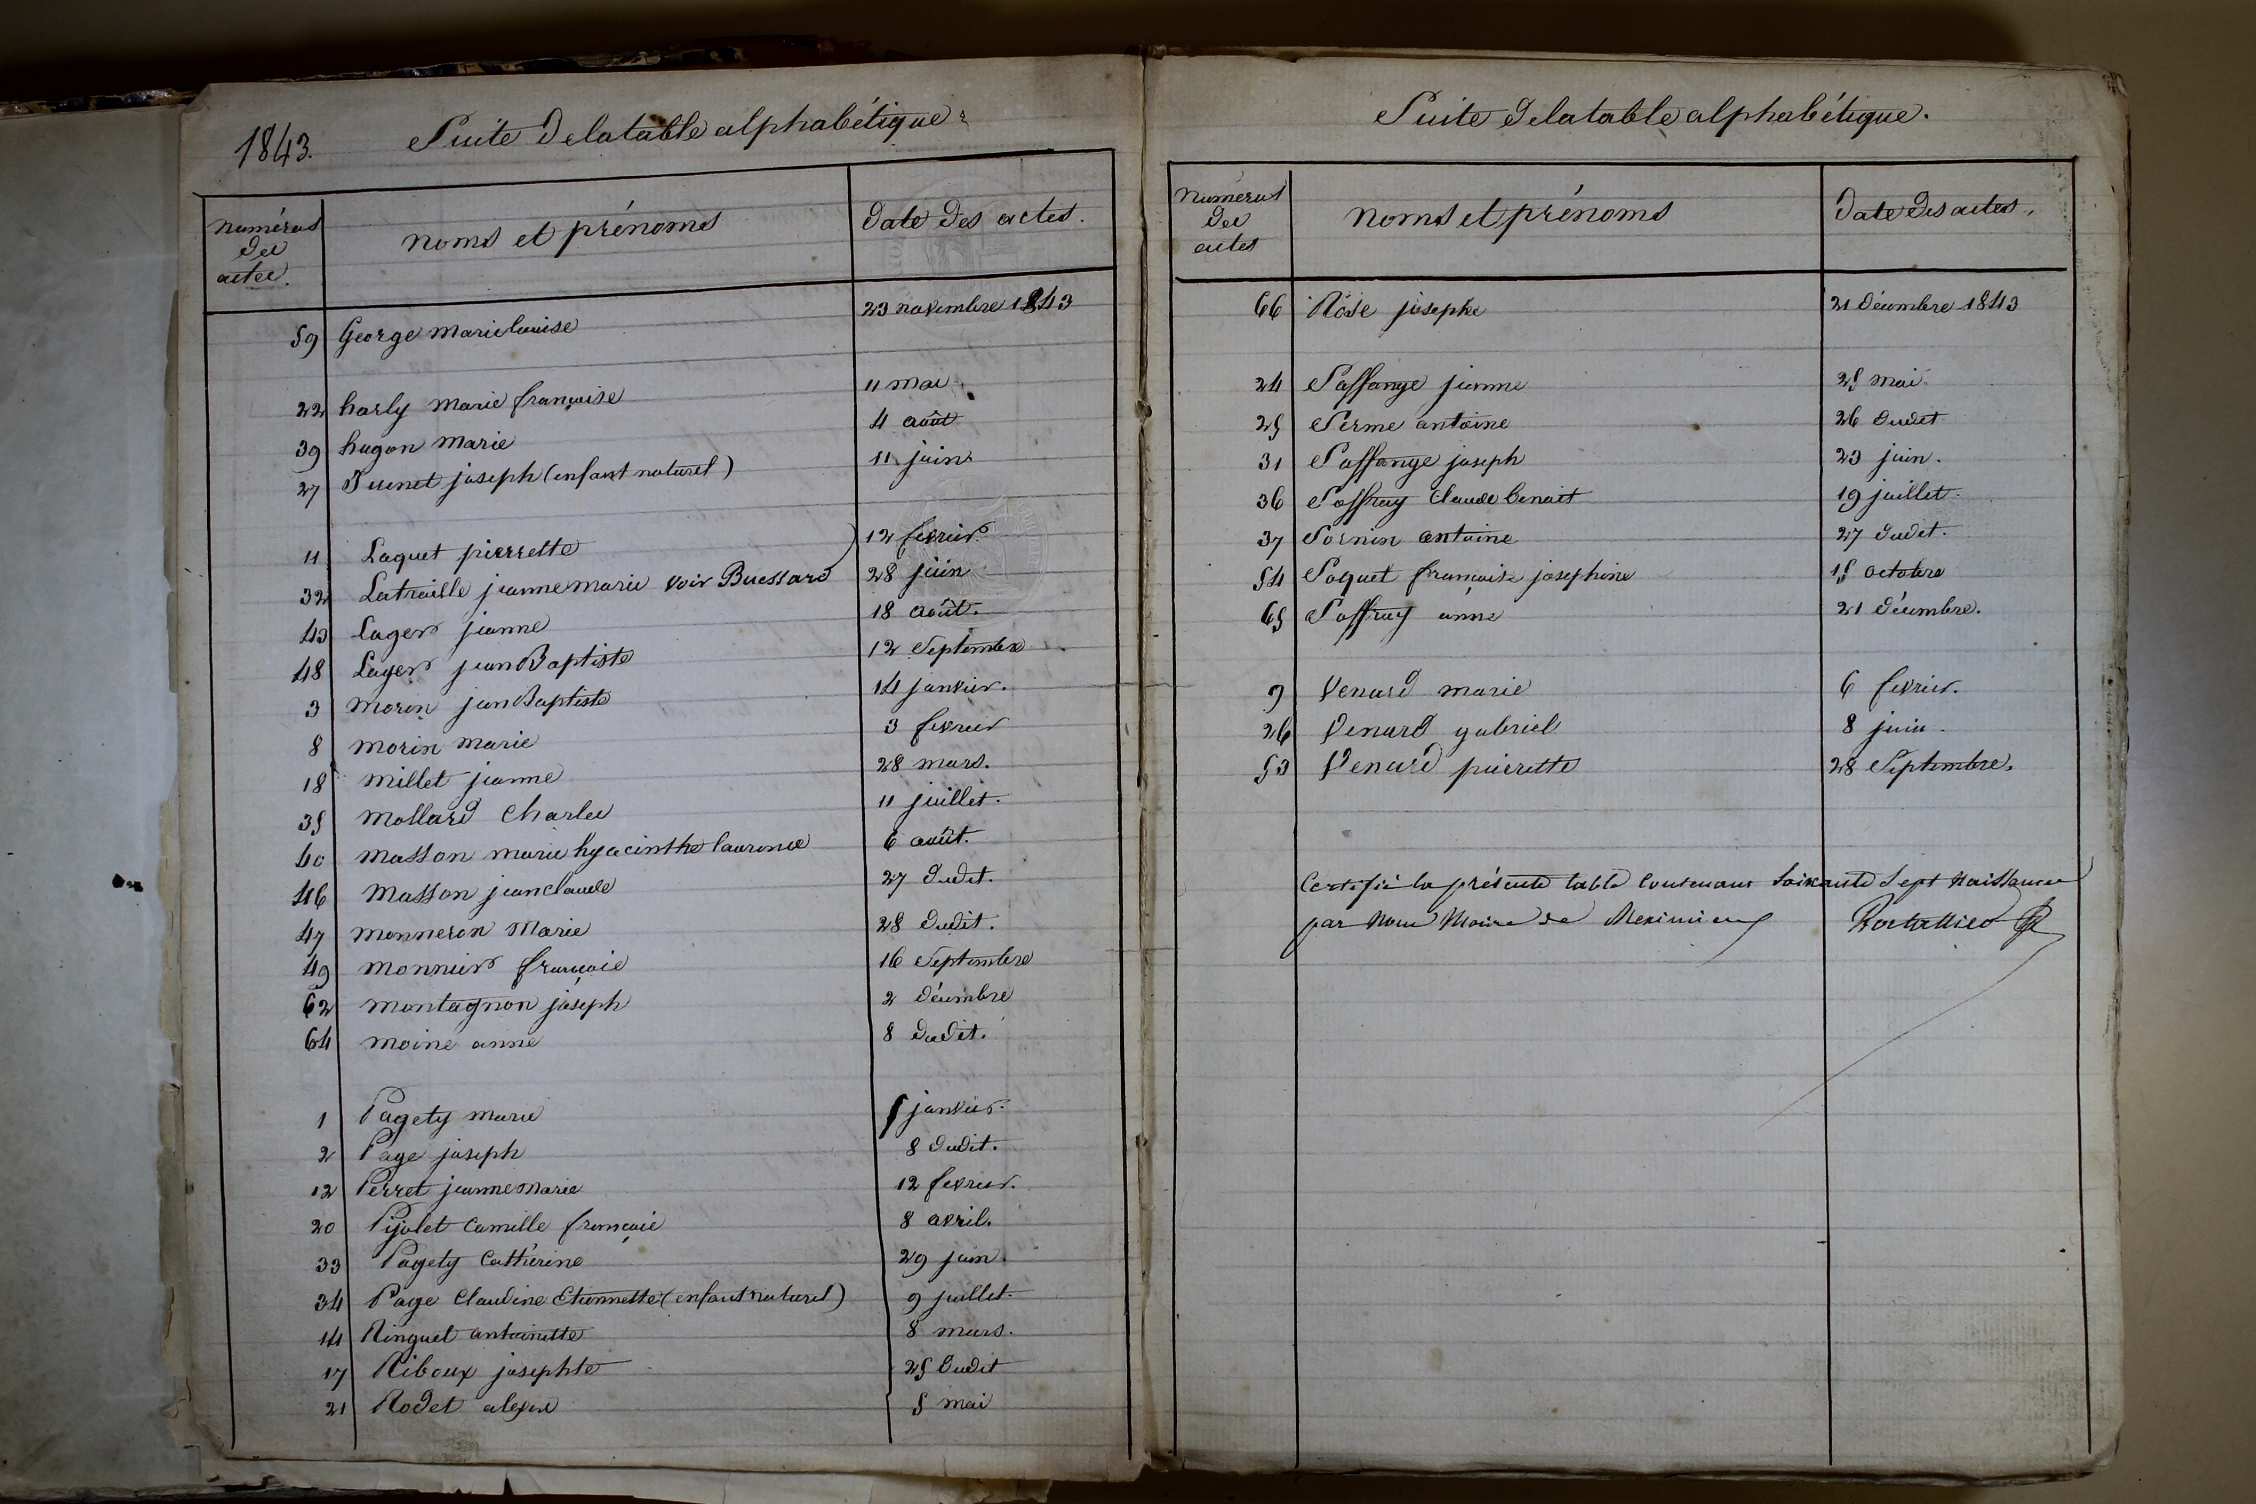 1843.
Suite de la table alphabétique.
Numéros
des
actes.
noms et prénoms
date des actes.
59 George marie louise 23 novembre 1843
22 harly marie françoise 11 mai
39 hugon marie 4 août
27 Juenet joseph (enfant naturel) 11 juin
11 Laguet pierrette 12 fevrier
32 Latraille jeanne marie voir Buessard 28 juin
43 Lager jeanne 18 août.
48 Lager jean Baptiste 12 Septembre
3 morin jean Baptiste 14 janvier.
8 morin marie 3 fevrier
18 millet jeanne 28 mars.
35 mollard Charles 11 juillet.
40 masson marie hyacinthe laurence 6 août.
46 masson jean claude 27 dudit.
47 monneron marie 28 dudit.
49 monnier françois 16 Septembre
62 montagnon joseph 2 décembre
64 moine anne 8 dudit.
1 Pagety marie 5 janvier.
2 Page joseph 8 dudit.
12 Perret jeanne marie 12 fevrier.
20 Pijolet Camille françois 8 avril.
33 Pagety Cathérine 29 juin.
34 Page Claudine Etiennette (enfant naturel) 9 juillet.
14 Ringuet antoinette 8 mars.
17 Riboux josephte 25 dudit
21 Rodet alexis 5 mai
Suite de la table alphabétique.
Numéros
des
actes
noms et prénoms
date des actes.
66 Rose josephe 21 décembre 1843
24 Saffange jeanne 25 mai.
25 Serme antoine 26 dudit
31 Saffange joseph 23 juin.
36 Saffray Claude benoit 19 juillet.
37 Sornin antoine 27 dudit.
54 Soquet françoise josephine 15 octobre
65 Saffray anne 21 décembre.
9 Venard marie 6 fevrier.
26 Venard gabriel 8 juin.
53 Venard pierrette 28 Septembre.
Certifié la présente table contenant soixante sept naissances
par nous Maire de Meximieux